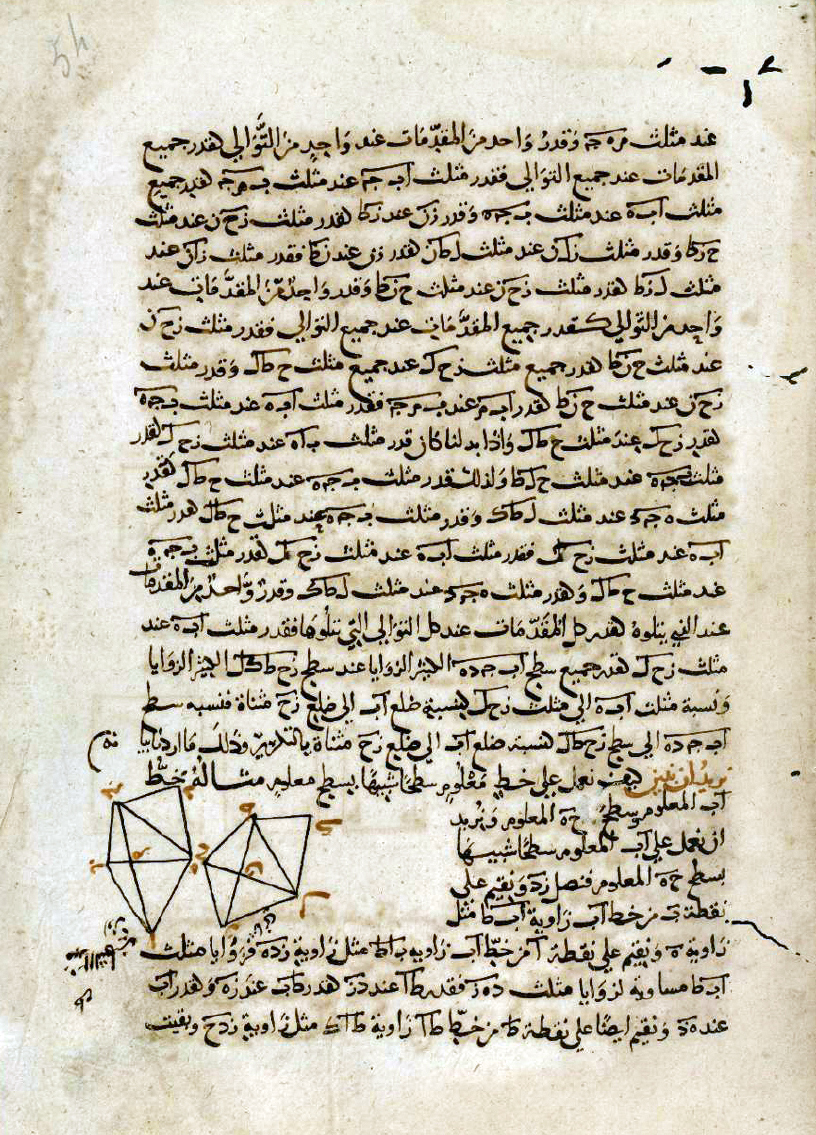 54
عند مثلث مره جه وقدر واحد من المقدمات عند واحد من التوالي كقدر جميع
المقدمات عند جميع التوالي فقدر مثلث اب جه عند مثلث ب مرجه كقدر جميع
مثلث اب ه عند مثلث ب جه وقدر زن عند ن كا كقدر مثلث زح ن عند مثلث
ح ن كا وقدر مثلث زل ن عند مثلث ل كا ن كقدر زن عند ن كا فقدر مثلث زل ن عند
مثلث ل ن كا كقدر مثلث زح ن عند مثلث ح ن كا وقدر واحد من المقدمات عند
واحد من التوالي كقدر جميع المقدمات عند جميع التوالي فقدر مثلث زح ن
عند مثلث ح ن كا كقدر جميع مثلث زح ل عند جميع مثلث ح طال وقدر مثلث
زح ن عند مثلث ح ن كا كقدر اب مر عند ب مرجه فقدر مثلث اب ه عند مثلث ب جه
كقدر زح ل عند مثلث ح طال واذا بدلنا كان قدر مثلث ب اه عند مثلث زح ل كقدر
مثلث ب جه عند مثلث ح ل كا ولذلك قدر مثلث ب جه عند مثلث ح طال كقدر
مثلث ه جد عند مثلث ل طاك وقدر مثلث ب جه عند مثلث ح طال كقدر مثلث
اب ه عند مثلث زح ل فقدر مثلث اب ه عند مثلث زح ل كقدر مثلث ب جه
عند مثلث ح طال وكقدر مثلث ه جد عند مثلث ل طاك وقدر واحد من المقدمات
عند الذي يتلوه كقدر كل المقدمات عند كل التوالي التي تتلوها فقدر مثلث اب ه عند
مثلث زح ل كقدر جميع سطح اب جده الكثير الزوايا عند سطح زح طاكل الكثير الزوايا
ونسبة مثلث اب ه الى مثلث زح ل كنسبة ضلع اب الى ضلع زح مثناة فنسبه سطح
اب جده الى سطح زح طاكل كنسبة ضلع اب الى ضلع زح مثناة بالتكرير وذلك ما اردنا
نريد ان نبين كيف نعمل على خط معلوم سطحا شبيها بسطح معلوم مثاله خط
اب المعلوم وسطح ح ه المعلوم ونريد
ان نعمل على اب المعلوم سطحا شبيها
بسطح ح ه المعلوم فنصل زد ونقيم على
نقطة ب من خط اب زاوية اب طا مثل
زاوية ه ونقيم على نقطة ا من خط اب زاويه ب اط مثل زاوية زده فزوايا مثلث
اب طا مساويه لزوايا مثلث ده ز فقدر طا عند دز كقدر طاب عند زه وكقدر اب
عند ه د ونقيم ايضا على نقطة طا من خط طا زاوية طاك مثل زاوية زدح وبقيت